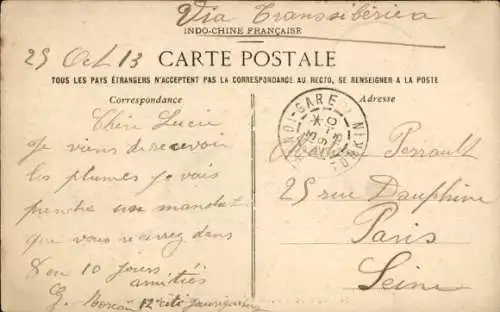 Via Transsibérien
INDO-CHINE FRANÇAISE
25 Oct 13
CARTE POSTALE
TOUS LES PAYS ÉTRANGERS N'ACCEPTENT PAS LA CORRESPONDANCE AU RECTO, SE RENSEIGNER A LA POSTE
Correspondance
Chère Lucie
Je viens de recevoir
les plumes je vais
prendre un mandat
que vous recevrez dans
8 ou 10 jours
amitiés
G. 12 cité
Adresse
GARE TONKIN
Perrault
25 rue Dauphine
Paris
Seine